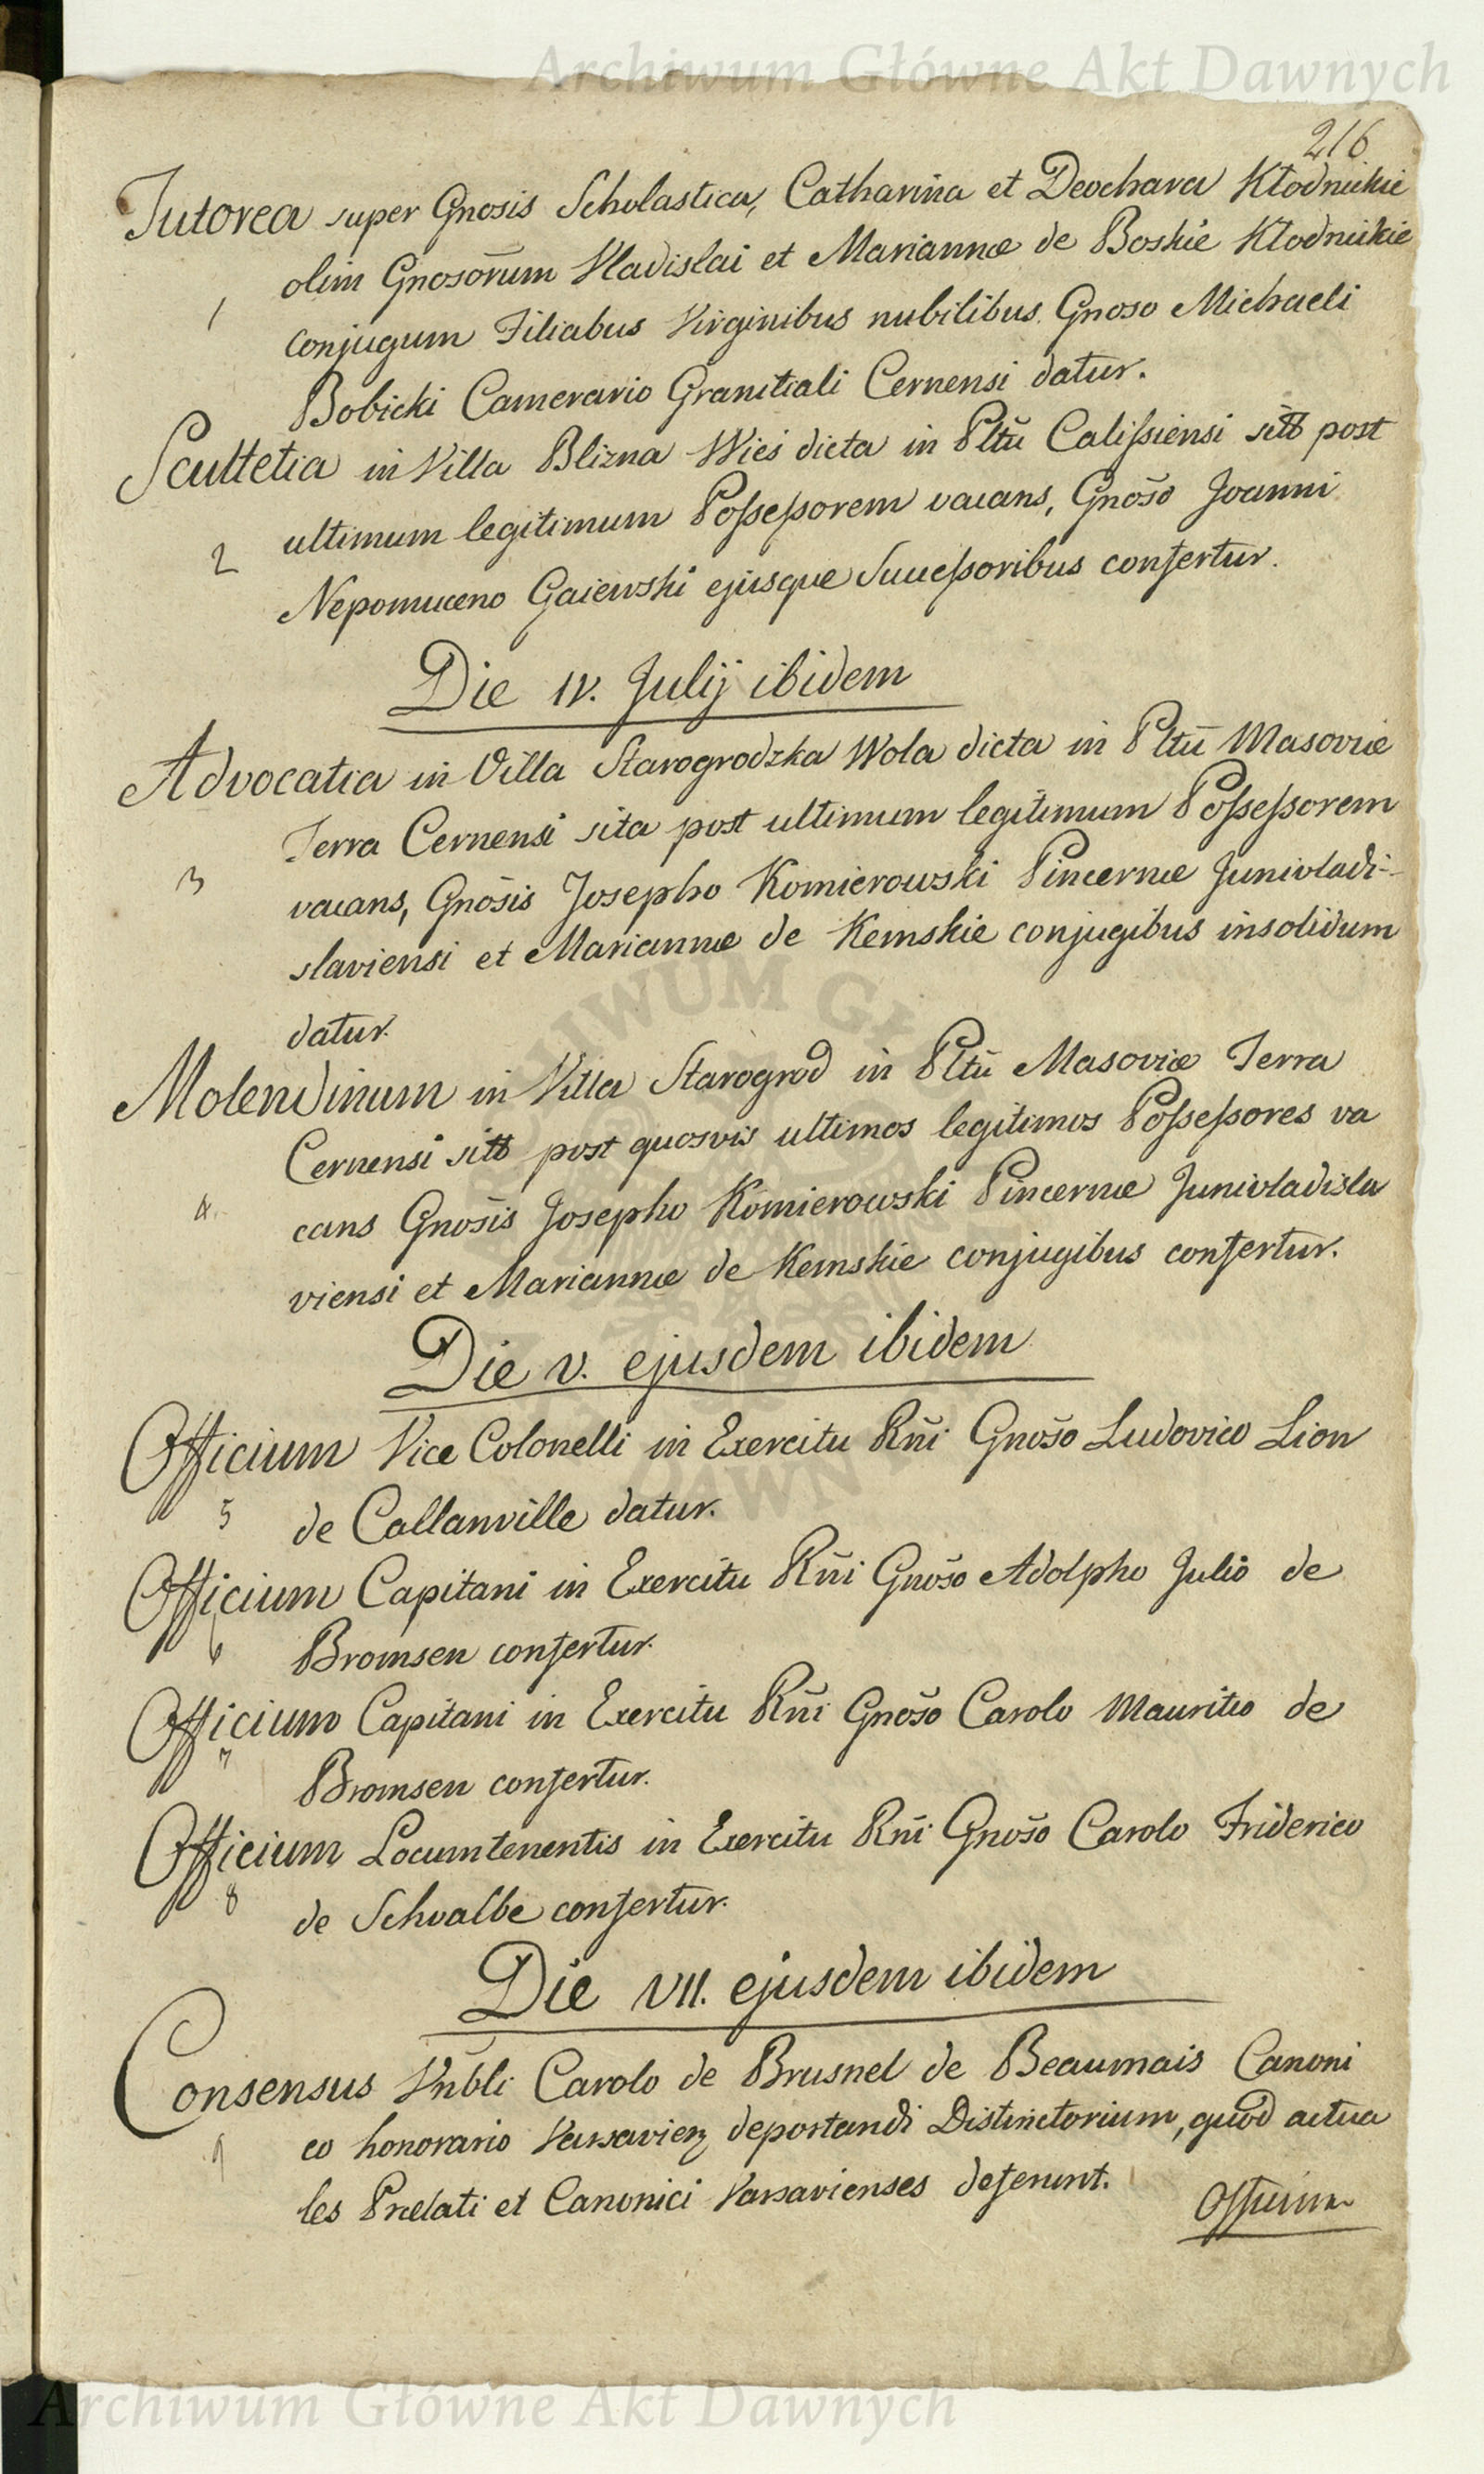 Archiwum Główne Akt Dawnych
216
Tutorea super Gnosis Scholastica, Catharina et Deochara Kłodnickie
olim Gnosorum Vladislai et Mariannæ de Boskie Kłodnickie
1
conjugum Filiabus Virginibus nubilibus Gnoso Michaeli
Bobicki Camerario Granitiali Cernensi datur.
Scultetia in Villa Blizna Wieś dicta in Pltũ Calissiensi sitt post
ultimum legitimum Possessorem vacans, Gnoso Joanni
2
Nepomuceno Gaiewski ejusque Successoribus confertur.
Die IV. Julij ibidem
Advocatia in Villa Starogrodzka Wola dicta in Pltũ Masoviæ
Terra Cernensi sita post ultimum legitimum Possessorem
3
vacans, Gnosis Josepho Komierowski Pincernæ Junivladi-
slaviensi et Mariannæ de Kemskie conjugibus insolidum
datur.
Molendinum in Villa Starogrod in Pltũ Masoviæ Terra
Cernensi sitt post quosvis ultimos legitimos Possessores va
4.
cans Gnosis Josepho Komierowski Pincernæ Junivladisla
viensi et Mariannæ de Kemskie conjugibus confertur.
Die V. ejusdem ibidem
Officium Vice Colonelli in Exercitu Rñi Gnoso Ludovico Lion
5
de Callanville datur.
Officium Capitani in Exercitu Rñi Gnoso Adolpho Julio de
6
Bromsen confertur.
Officium Capitani in Exercitu Rñi Gnoso Carolo Mauritio de
7
Bromsen confertur.
Officium Locumtenentis in Exercitu Rñi Gnoso Carolo Friderico
8
de Schvalbe confertur.
Die VII. ejusdem ibidem
Consensus Vnbli Carolo de Brusnel de Beaumais Canoni
co honorario Varsavien deportandi Distinctorium, quod actua
9
les Prælati et Canonici Varsavienses deferunt.
Officium
Archiwum Główne Akt Dawnych